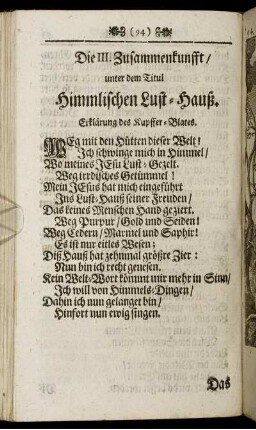 (94)
Die III. Zusammenkunfft/
unter dem Titul
Himmlischen Lust-Hauß.
Erklärung des Kupffer-Blates.
WEg mit den Hütten dieser Welt!
Ich schwinge mich in Himmel/
Wo meines JEsu Lust-Gezelt.
Weg irrdisches Getümmel!
Mein JEsus hat mich eingeführt
Ins Lust-Hauß seiner Freuden/
Das keines Menschen Hand geziert.
Weg Purpur/ Gold und Seiden!
Weg Cedern/ Marmel und Saphir!
Es ist nur eitles Wesen;
Diß Hauß hat zehnmal größre Zier:
Nun bin ich recht genesen.
Kein Welt-Wort kömmt mir mehr in Sinn/
Ich will von Himmels-Dingen/
Dahin ich nun gelanget bin/
Hinfort nun ewig singen.
Das